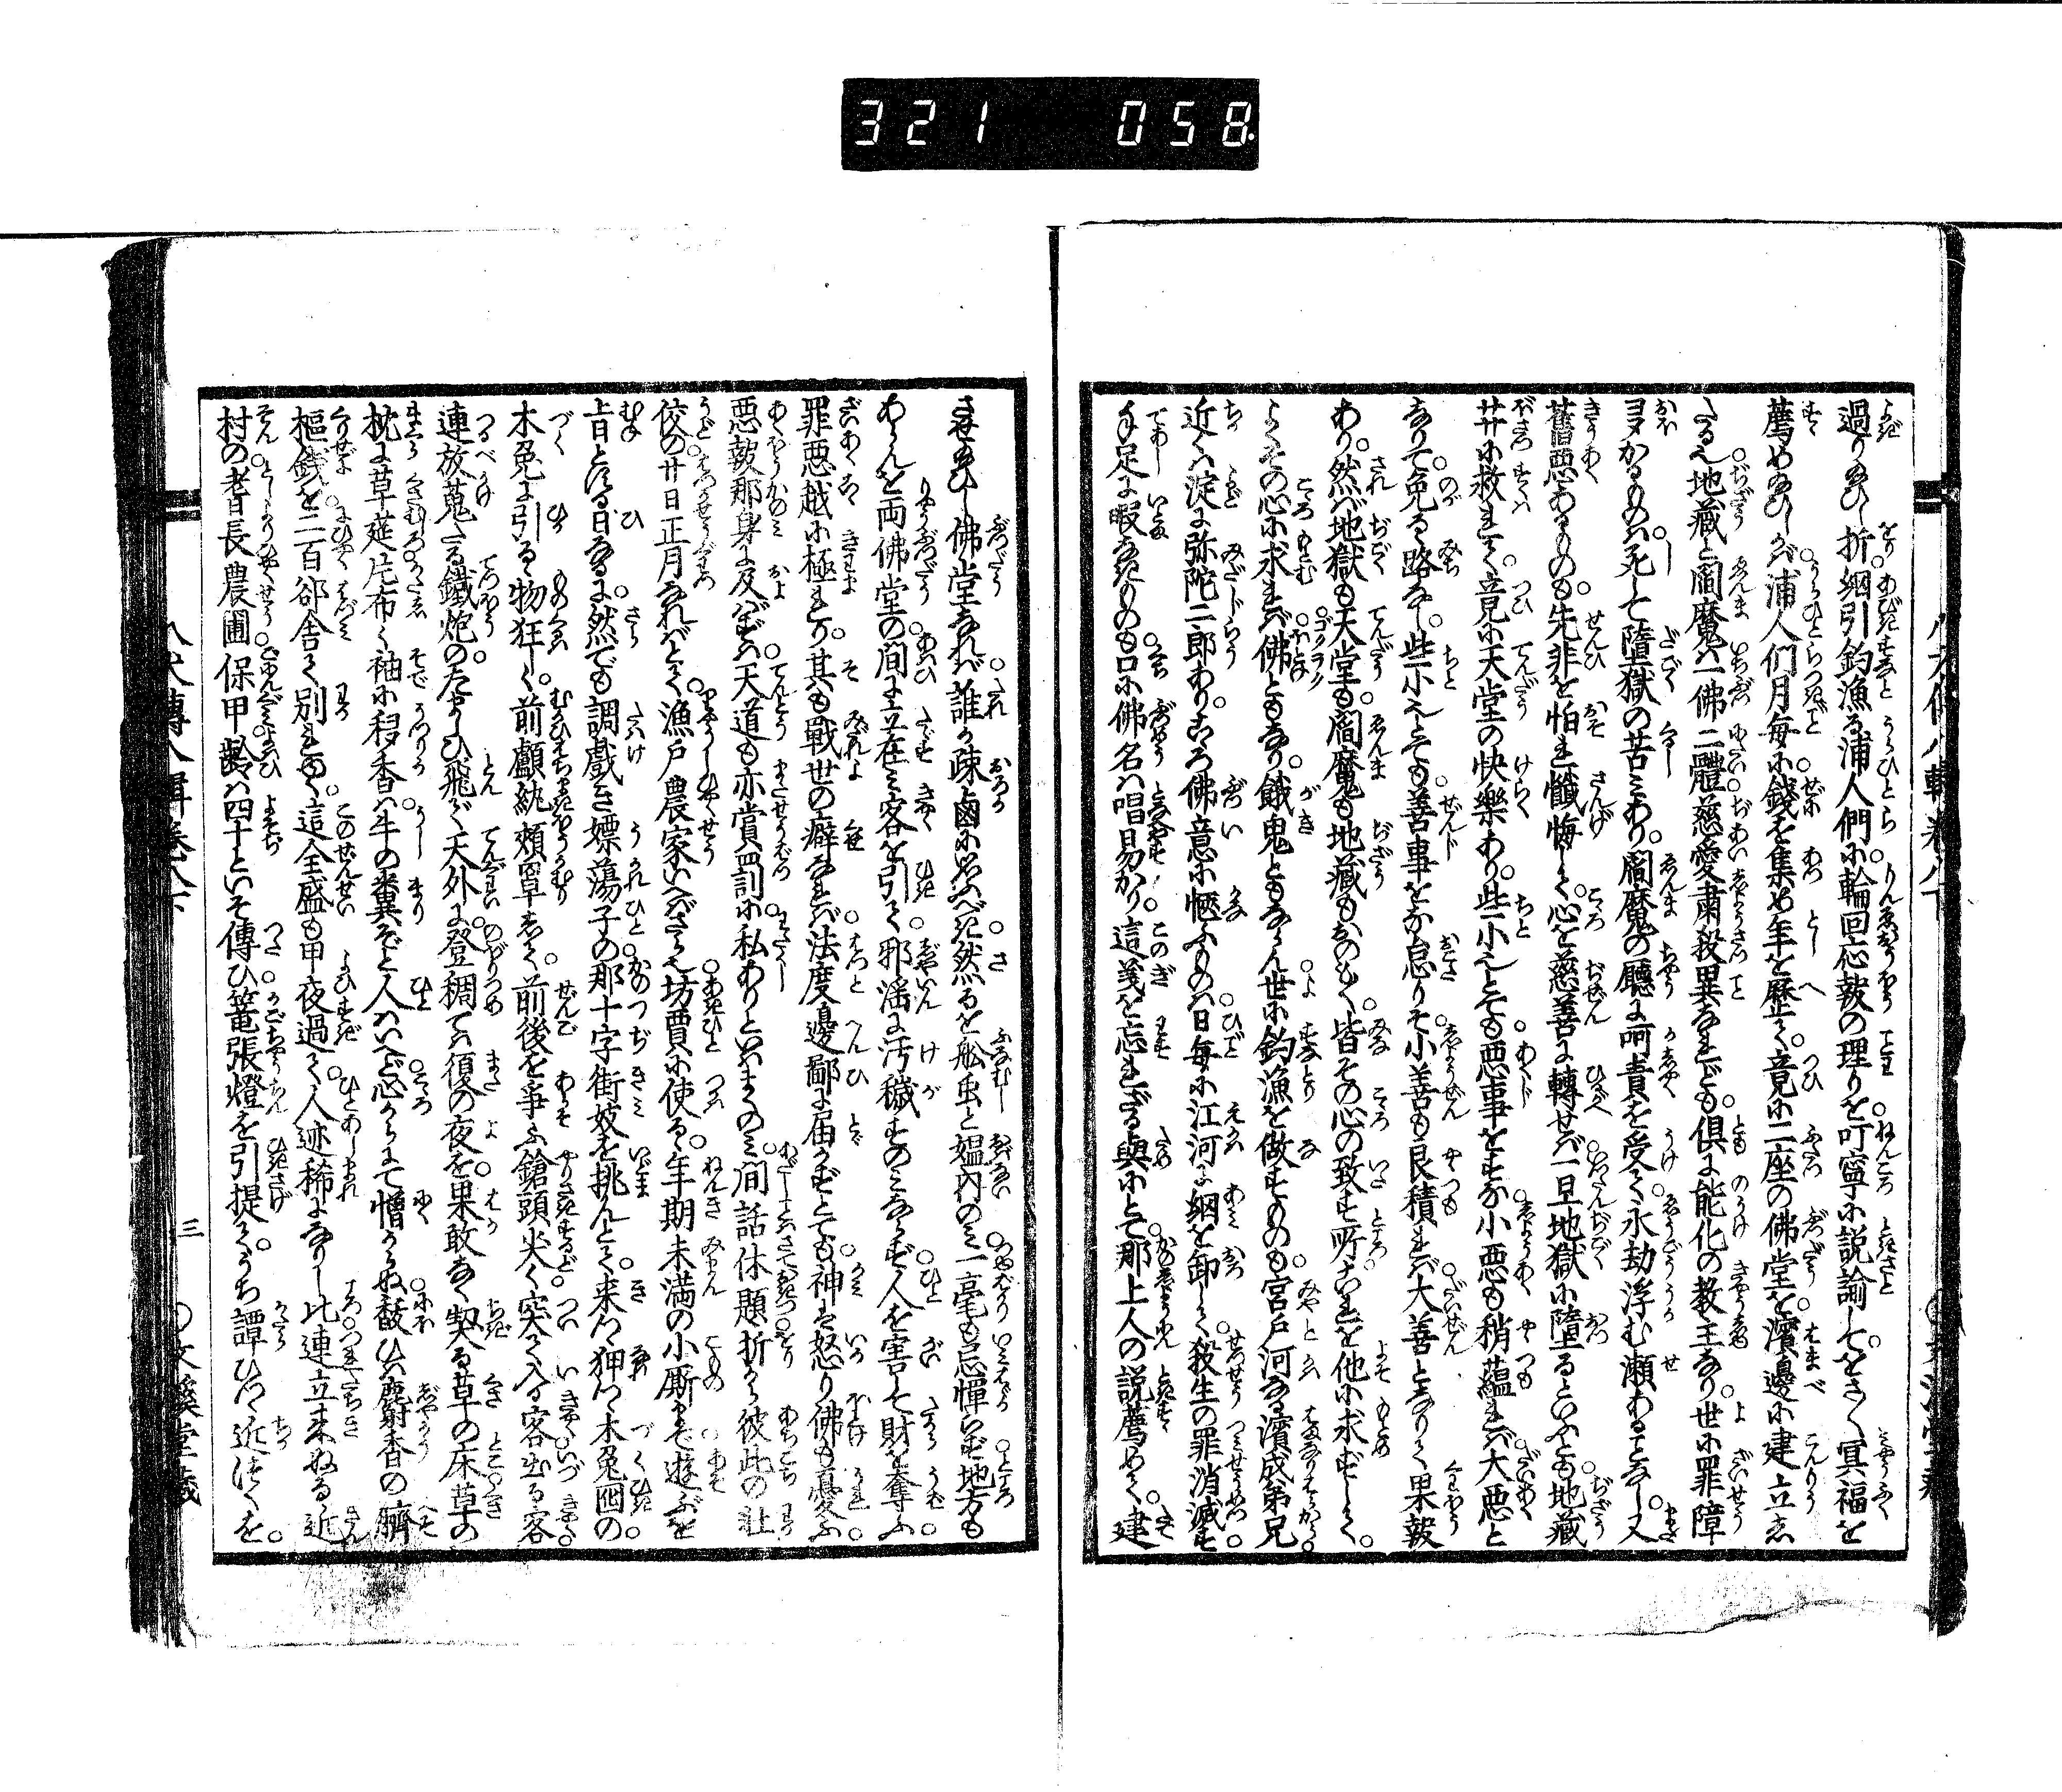 321 058
過り給ひし折網引釣漁る浦人們に輪回応報の理りを叮寧に説諭してをさ〳〵冥福を
薦め給ひしかば浦人们月毎に錢を集め年を歴て竟に二座の佛堂を濱邊に建立し
たる也地藏と閻魔は一佛二體慈愛肅殺異なれども倶に能化の教主なり世に罪障
ヲヲかるものは死して墮獄の苦みあり閻魔の廳に呵責を受て永劫浮む瀬あることなし又
舊悪あるものも先非を怕れ懺悔して心を慈善に轉せば一旦地獄に墮るといふとも地藏
𦬇に救れて竟に天堂の快樂あり些小也とても悪事をすな小悪も稍蘊れば大悪と
なりて免るゝ路なし些小也とても善事をな怠りそ小善も良積れば大善となりて果報
あり然ば地獄も天堂も閻魔も地藏もおのもく皆その心の致す所これを他に求ずして
よくその心に求れば佛ともなり餓鬼ともならん世に釣漁を做すものも宮戸河なる濱成弟兄
近くは淀に弥陀二郎ありこゝろ佛意に愜ふものは日毎に江河に網を卸して殺生の罪消滅す
手足に暇なきものも口に佛名は唱易かり這義を忘れざる與にとて那上人の説薦めて建
させ給ひし佛堂なれば誰か疎鹵に思ふべき然るを舩虫と媼内のみ一毫も忌憚らず地方も
あらんを両佛堂の間に立在み客を引て邪滛に汚穢すのみならず人を害して財を奪ふ
罪悪越に極れり其も戰世の癖なれば法度邊鄙に届かずとても神は怒り佛も憂ふ
悪報那身に及ばずは天道も亦賞罰に私ありといはまくのみ間話休題折から彼此の壯
佼の廿日正月なればとて漁戸農家いへばさら也坊賈に使るゝ年期未満の小厮まで遊ぶを
旨とする日なるに然でも調戯き嫖蕩子の那十字街妓を挑んとて来つ狎つ木兔囮の
木兔に引るゝ物狂しく前顱紈頰䍐して前後を爭ふ鎗頭尖く突て入る客出る客
連放蒐たる鐵炮のたまひ飛で天外に登稠ては復の夜を果敢なく契る草の床草の
枕に草莚片布く袖に移香は牛の糞ぞと人はいへど心からにて憎からぬ馥ひは麝香の臍
樞錢を二百卻舎て別れもて這全盛も甲夜過て人迹稀になりし比連立来ぬる近
村の耆長農圃保甲齢は四十といそ傳ひ篭張燈を引提てうち譚ひつゝ近つくを
八犬傳八輯卷八下
三
文溪堂藏